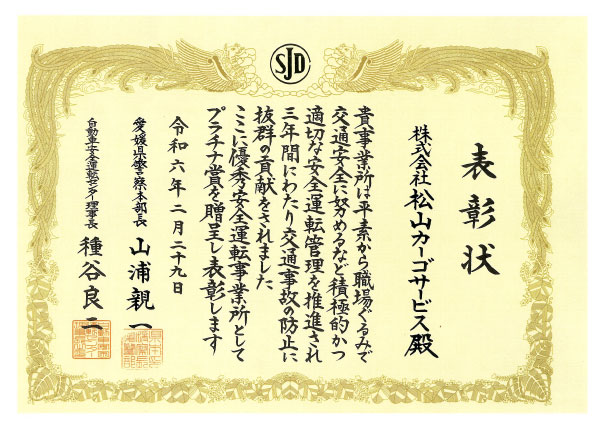 SJD
表彰状
株式会社松山カーゴサービス殿
貴事業所は平素から職場ぐるみで
交通安全に努めるなど積極的かつ
適切な安全運転管理を推進され
三年間にわたり交通事故の防止に
抜群の貢献をされました
ここに優秀安全運転事業所として
プラチナ賞を贈呈し表彰します
令和六年二月二十九日
愛媛県警察本部長 山浦親一
自動車安全運転センター理事長 種谷良二